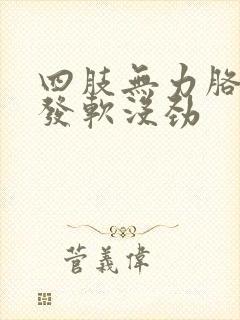 四肢無力胳
發軟沒勁
菅義偉